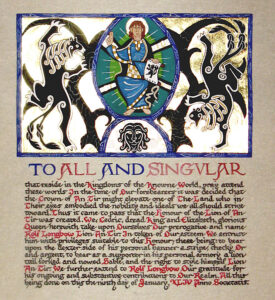 TO ALL AND SINGVLAR
that reside in the Kingdoms of the Knowne World, pray attend
these words. In the time of Our forebearers it was decided that
the Crown of An Tir might elevate one of The Land who in
Their eyes embodied the nobility and ideal we all should strive
toward. Thus it came to pass that the honour of the Lion of An
Tir was created. We, Cedric, dread King and Elizabeth, glorious
Queen herewith take upon Ourselves Our prerogative and name
Rolf Longbow Lion An Tir. In token of Our esteem We entrust
him with privileges suitable to this honour; these being: to bear
upon the dexter side of his personal banner a stripe checky Or
and argent; to wear as a supporter in his personal armory a lion
tail forked and nowed Sable; and the right to style himself Lion
An Tir. We further extend to Rolf Longbow Our gratitude for
his ongoing and substantive contributions to Our Realm. All this
being done on this the ninth day of January, XLIV Anno Societatis.